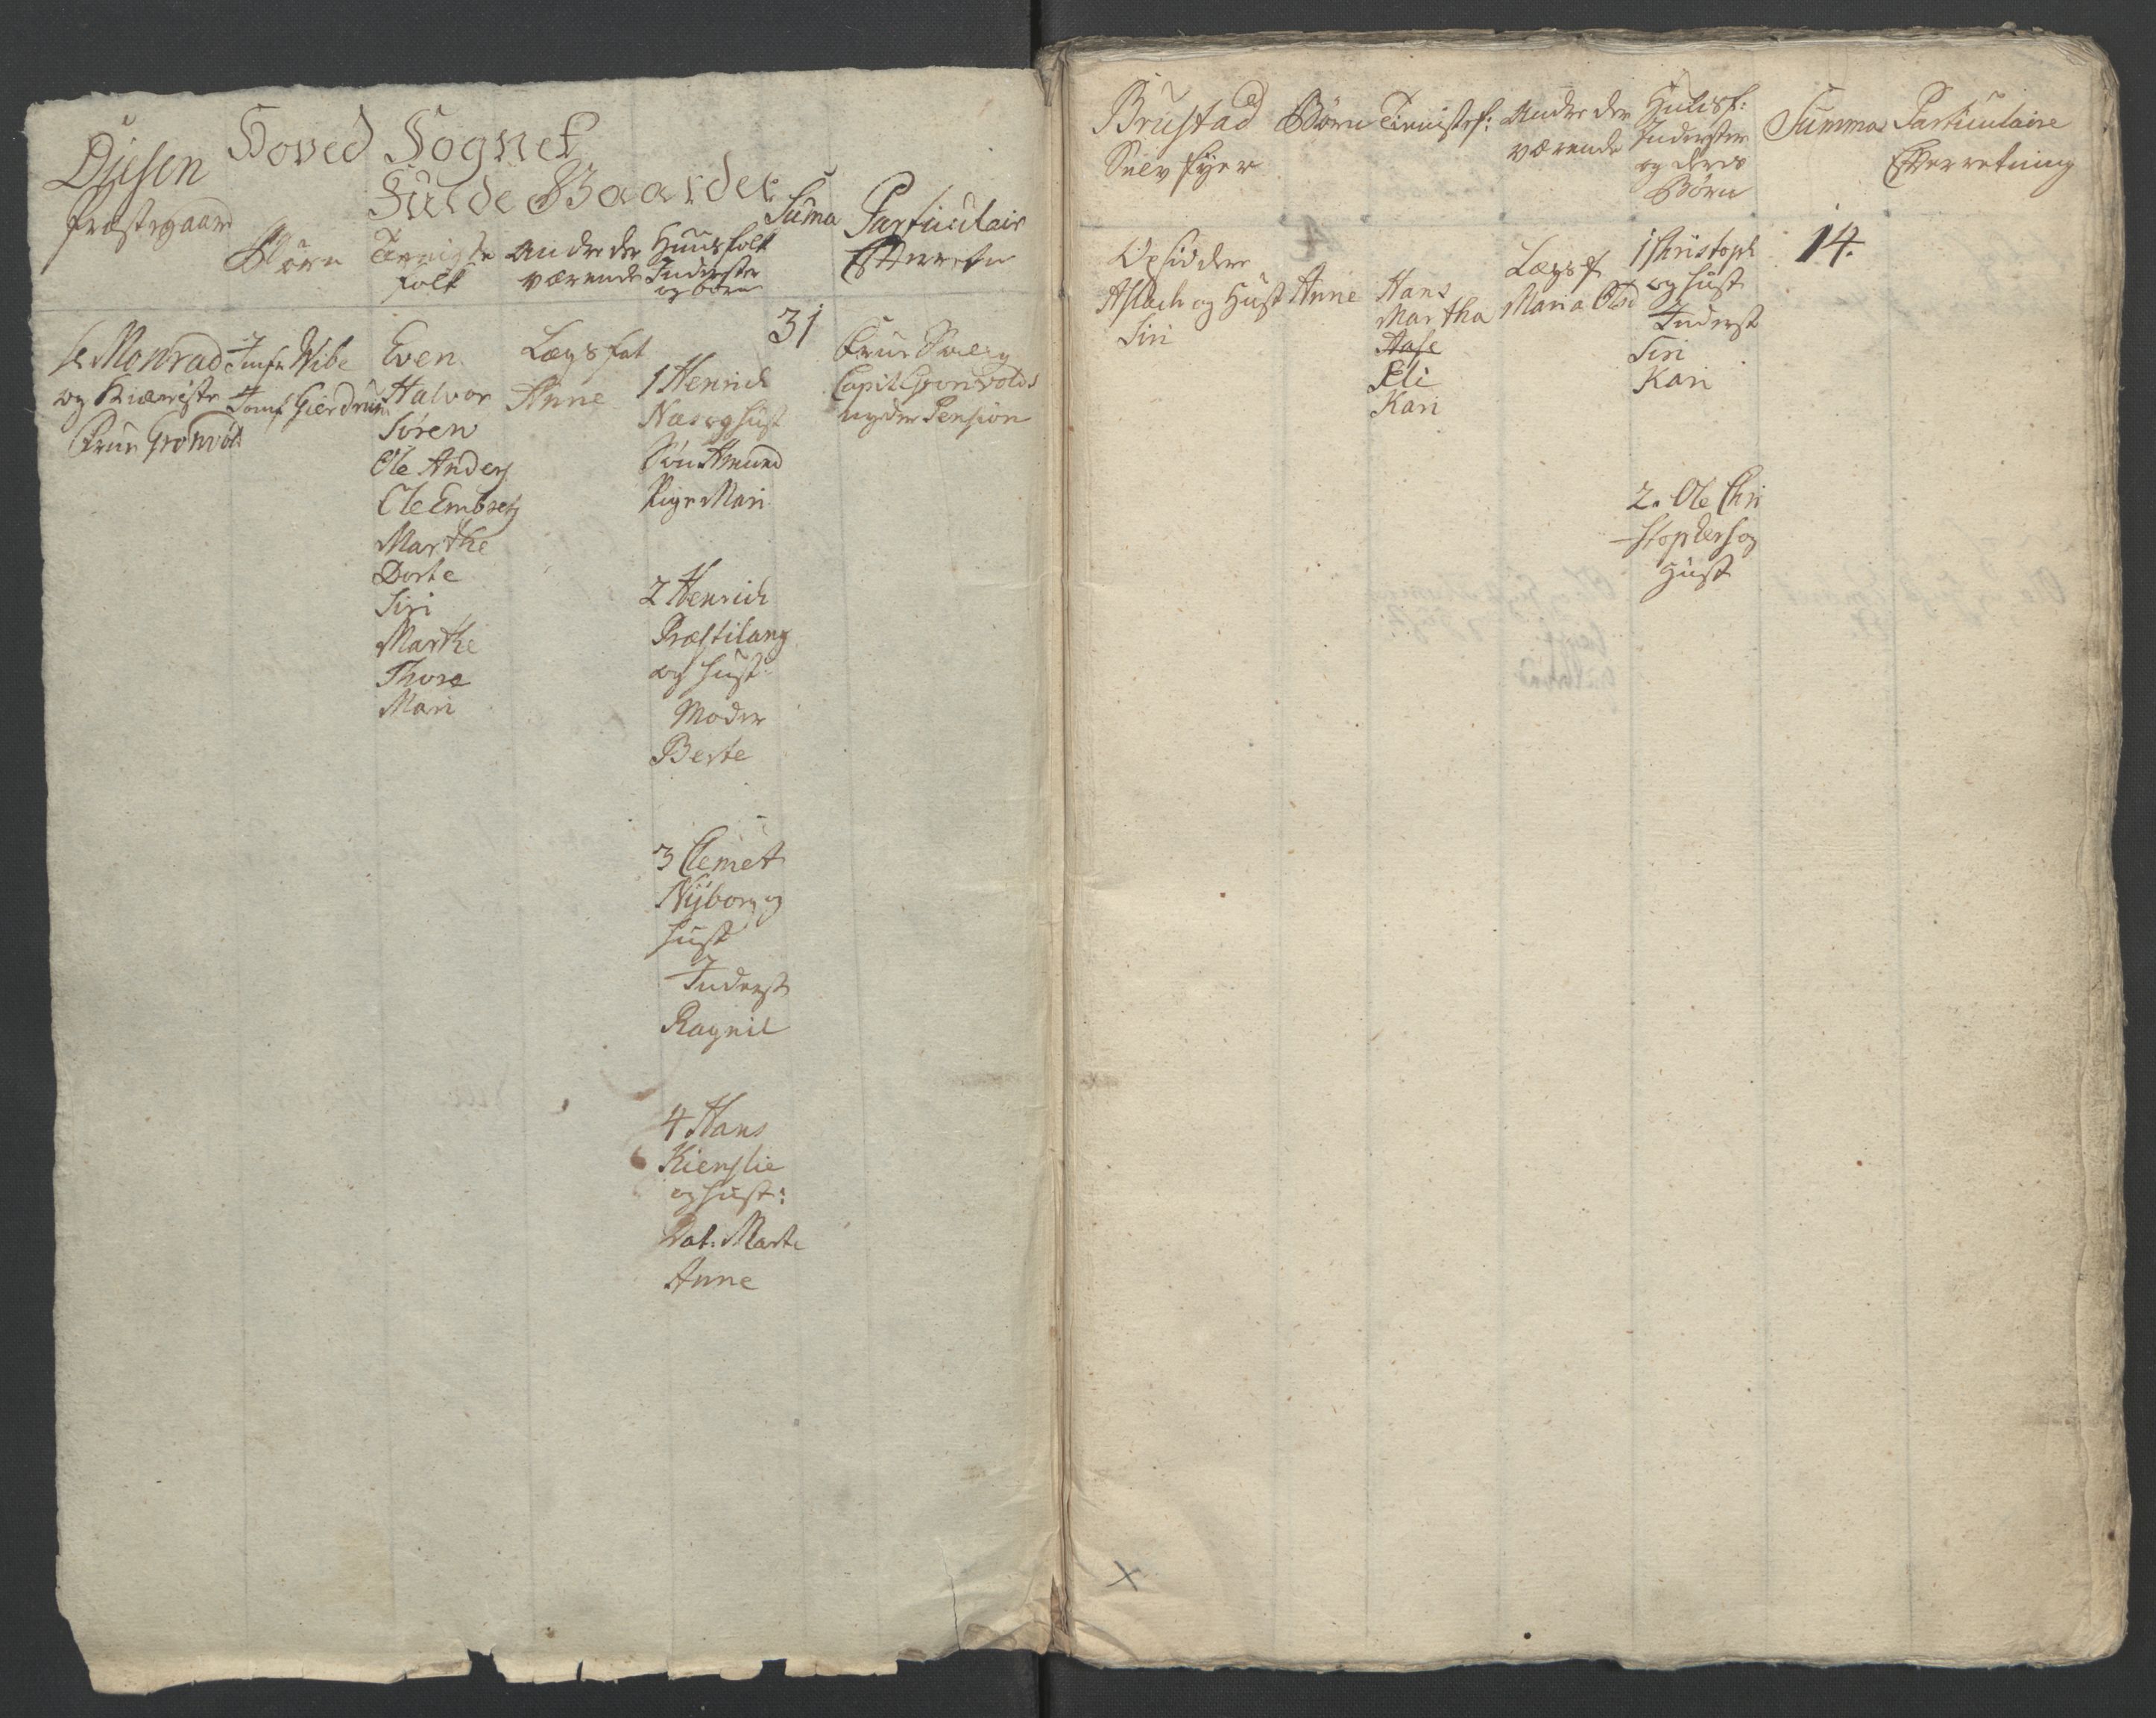 Hoved Sognet
Fulde Gaarder
Disen
Præstegaard
Børn
Tienniste
folk
Andre der
værende
Huusfolk
Inderster
og børn
Suma
Particulair
Efterretn
31
Hr Monrad
og Kiæriste
Frue Gronvold
Jomfr Wibe
Jomf Gierdrum
Even
Halvor
Sören
Ole Anders
Ole Embretz
Marthe
Dorte
Siri
Marthe
Thore
Mari
Lægsfat
Anne
1 Henrich
Næs og Hust
Søn Amund
Pige Mari
2 Henrich
Præstilang
og Hust
Moder
Berte
3 Clemet
Nÿborg og
Hust
Inderst
Ragnil
4 Hans
Kierslie
og Hust:
Dat: Marte
Anne
Frue
Capit Gronvolds
nyder Pension
Brustad
Selv Eyer
Børn
Tienistef:
Andre der
værende
Huusf:
Inderster
og deres
Børn
Summa
Particulaire
Efterretning
Opsiddere
Aslach og Hust
Siri
Anne
Hans
Martha
Aase
Eli
Kari
Lægsf
Maria Olsd
1 Christoph
og Hust
Inderst
Siri
Kari
2. Ole Chri
stophers og
Hust
14.
x